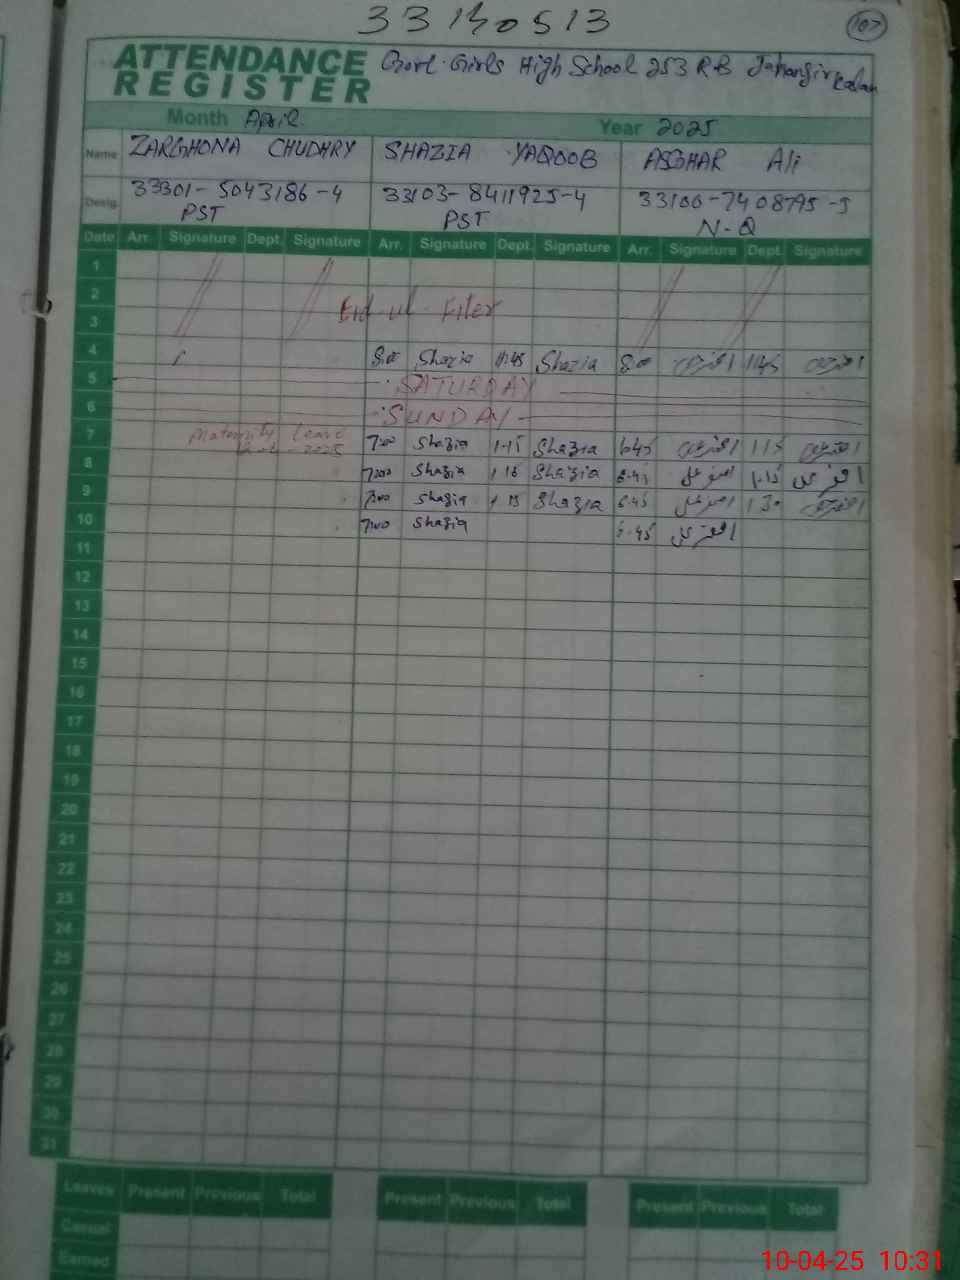 33130513
107
ATTENDANCE REGISTER Govt. Girls High School 253 RB Jahangir Kalan
Month April Year 2025
Name ZARGHONA CHUDHRY SHAZIA YAQOOB ASGHAR Ali
Desig. 33301-5043186-4 PST 33103-8411925-4 PST 33100-7408795-5 N-Q
Date Arr. Signature Dept. Signature Arr. Signature Dept. Signature Arr. Signature Dept. Signature
1
2 Eid-ul-Fiter
3
4 8:00 Shazia 11:45 Shazia 8:00 11:45
5 SATURDAY
6 SUNDAY
7 Maternity Leave 2025 7:00 Shazia 1:15 Shazia 6:45 1:15
8 7:00 Shazia 1:15 Shazia 6:45 1:15
9 7:00 Shazia 1:15 Shazia 6:45 1:30
10 7:00 Shazia 6:45
11
12
13
14
15
16
17
18
19
20
21
22
23
24
25
26
27
28
29
30
31
Leaves Present Previous Total Present Previous Total Present Previous Total
Casual
Earned
10-04-25 10:31